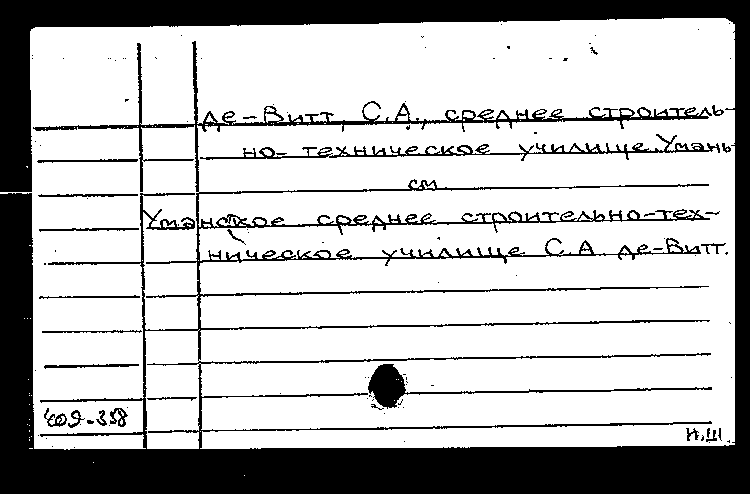 де-Витт, С.А., среднее строитель-
но-техническое училище. Умань
см
Уманское среднее строительно-тех-
ническое училище С.А. де-Витт.
409-338
Н.Ш.